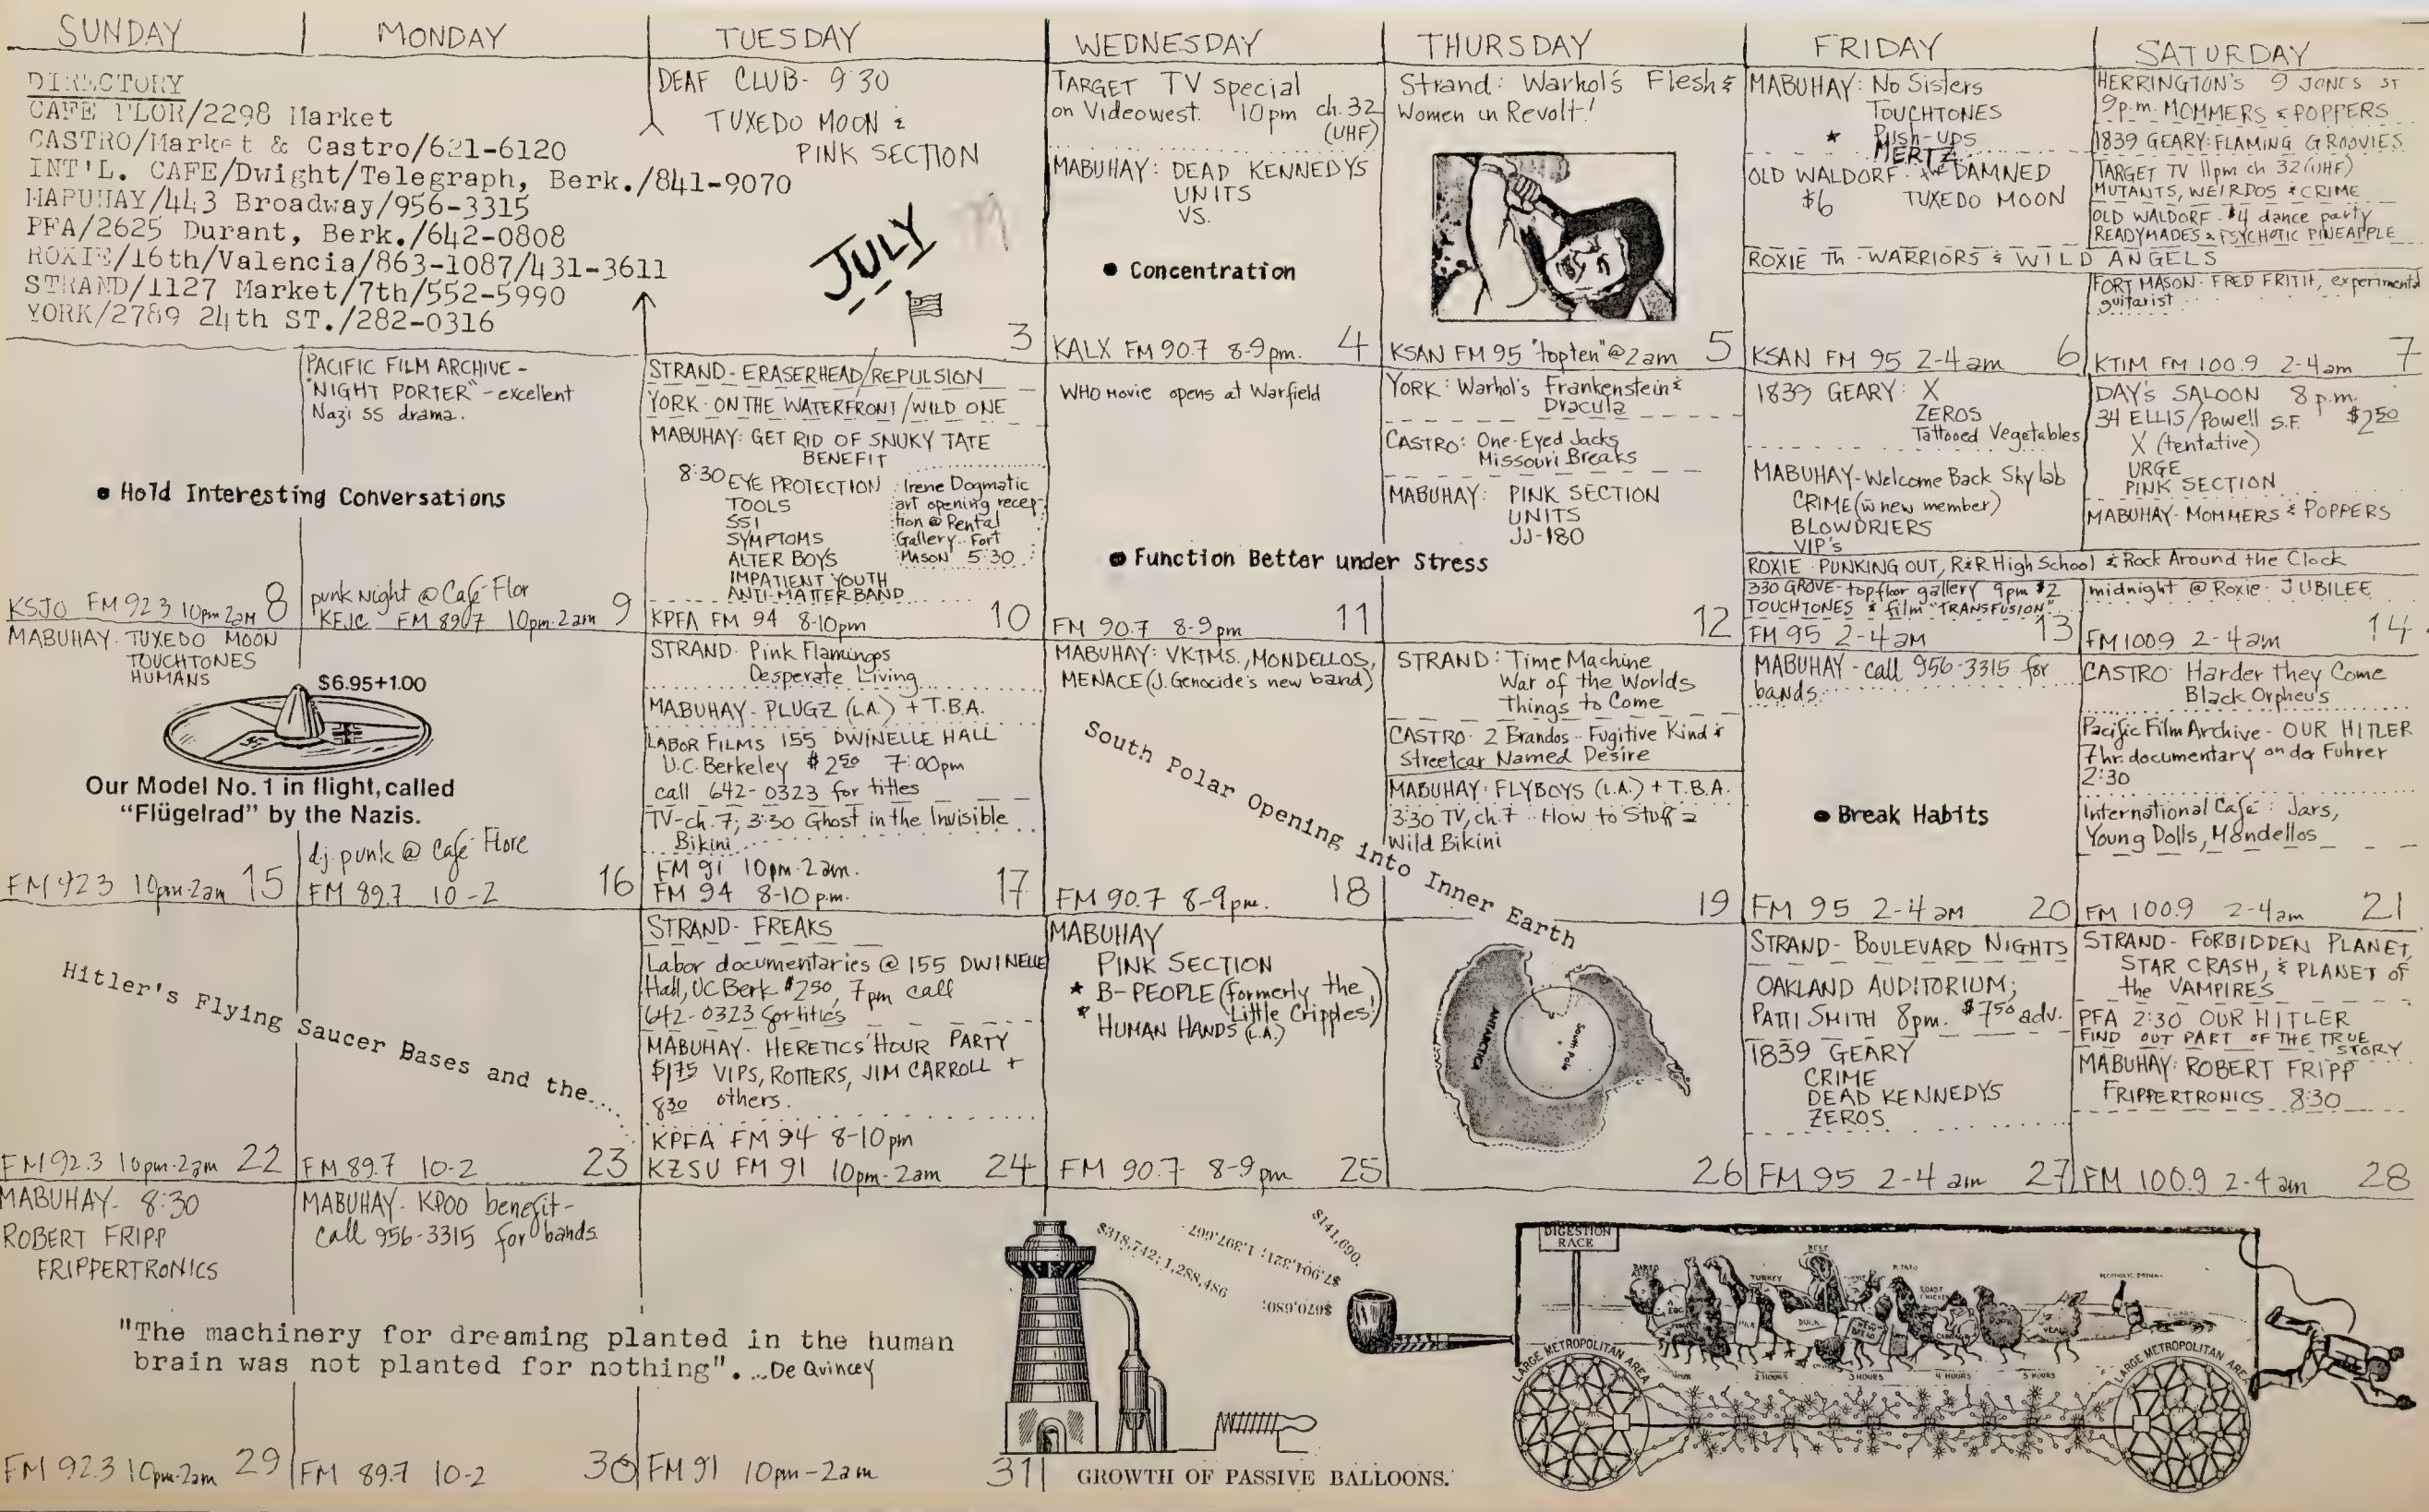 SUNDAY
MONDAY
TUESDAY
WEDNESDAY
THURSDAY
FRIDAY
SATURDAY
DIRECTORY
CAFE FLOR/2298 Market
CASTRO/Market & Castro/621-6120
INT'L. CAFE/Dwight/Telegraph, Berk./841-9070
MABUHAY/443 Broadway/956-3315
PFA/2625 Durant, Berk./642-0808
ROXIE/16th/Valencia/863-1087/431-3611
STRAND/1127 Market/7th/552-5990
YORK/2789 24th ST./282-0316
DEAF CLUB- 9:30
TUXEDO MOON &
PINK SECTION
JULY
3
TARGET TV special
on Videowest. 10pm ch. 32
(UHF)
MABUHAY: DEAD KENNEDYS
UNITS
VS.
• Concentration
KALX FM 90.7 8-9pm. 4
Strand: Warhol's Flesh &
Women in Revolt!
KSAN FM 95 "top ten" @ 2am 5
MABUHAY: No Sisters
TOUCHTONES
* Push-ups
HERTZ
OLD WALDORF: the DAMNED
$6 TUXEDO MOON
ROXIE Th - WARRIORS & WILD ANGELS
KSAN FM 95 2-4am 6
HERRINGTON'S 9 JONES ST
9p.m. MOMMERS & POPPERS
1839 GEARY: FLAMING GROOVIES
TARGET TV 11pm ch 32 (UHF)
MUTANTS, WEIRDOS & CRIME
OLD WALDORF - $4 dance party
READYMADES & PSYCHOTIC PINEAPPLE
FORT MASON - FRED FRITH, experimental
guitarist
KTIM FM 100.9 2-4am 7
• Hold Interesting Conversations
KSJO FM 92.3 10pm-2am 8
PACIFIC FILM ARCHIVE -
"NIGHT PORTER" - excellent
Nazi SS drama.
punk night @ Café Flor
KFJC FM 89.7 10pm-2am 9
STRAND - ERASERHEAD/REPULSION
YORK - ON THE WATERFRONT/WILD ONE
MABUHAY: GET RID OF SNUKY TATE
BENEFIT
8:30 EYE PROTECTION
TOOLS
SSI
SYMPTOMS
ALTER BOYS
IMPATIENT YOUTH
ANTI-MATTER BAND
Irene Dogmatic
art opening recep-
tion @ Rental
Gallery - Fort
MASON 5:30
KPFA FM 94 8-10pm 10
WHO Movie opens at Warfield
• Function Better under Stress
FM 90.7 8-9pm 11
YORK: Warhol's Frankenstein &
Dracula
CASTRO: One-Eyed Jacks
Missouri Breaks
MABUHAY: PINK SECTION
UNITS
JJ-180
12
1839 GEARY: X
ZEROS
Tattooed Vegetables
MABUHAY - Welcome Back Skylab
CRIME (w new member)
BLOWDRIERS
VIP's
ROXIE - PUNKING OUT, R&R High School & Rock Around the Clock
330 GROVE - topfloor gallery 9pm $2
TOUCHTONES & film "TRANSFUSION"
FM 95 2-4AM 13
DAY'S SALOON 8 p.m.
34 ELLIS/Powell S.F. $2.50
X (tentative)
URGE
PINK SECTION
MABUHAY - MOMMERS & POPPERS
midnight @ Roxie - JUBILEE
FM 100.9 2-4am 14
MABUHAY - TUXEDO MOON
TOUCHTONES
HUMANS
$6.95+1.00
Our Model No. 1 in flight, called
"Flügelrad" by the Nazis.
FM 92.3 10pm-2am 15
d.j. punk @ Café Flore
FM 89.7 10-2 16
STRAND - Pink Flamingos
Desperate Living
MABUHAY - PLUGZ (L.A.) + T.B.A.
LABOR FILMS 155 DWINELLE HALL
U.C. Berkeley $2.50 7:00pm
call 642-0323 for titles
TV-ch. 7; 3:30 Ghost in the Invisible
Bikini
FM 91 10pm-2am.
FM 94 8-10 p.m. 17
MABUHAY: VKTMS., MONDELLOS,
MENACE (J. Genocide's new band)
South Polar Opening into Inner Earth
FM 90.7 8-9pm. 18
STRAND: Time Machine
War of the Worlds
Things to Come
CASTRO - 2 Brandos - Fugitive Kind &
Streetcar Named Desire
MABUHAY: FLYBOYS (L.A.) + T.B.A.
3:30 TV, ch. 7 - How to Stuff a
Wild Bikini
19
MABUHAY - call 956-3315 for
bands
• Break Habits
FM 95 2-4AM 20
CASTRO - Harder they Come
Black Orpheus
Pacific Film Archive - OUR HITLER
7 hr. documentary on der Fuhrer
2:30
International Café: Jars,
Young Dolls, Mondellos
FM 100.9 2-4am 21
Hitler's Flying Saucer Bases and the....
FM 92.3 10pm-2am 22
FM 89.7 10-2 23
STRAND - FREAKS
Labor documentaries @ 155 DWINELLE
Hall, UC Berk $2.50, 7pm call
642-0323 for titles
MABUHAY - HERETICS' HOUR PARTY
$1.75 VIPS, ROTTERS, JIM CARROLL +
8:30 others.
KPFA FM 94 8-10pm
KZSU FM 91 10pm-2am 24
MABUHAY
PINK SECTION
* B-PEOPLE (formerly the
Little Cripples!)
* HUMAN HANDS (L.A.)
FM 90.7 8-9pm 25
ANTARCTICA
South Pole
26
STRAND - BOULEVARD NIGHTS
OAKLAND AUDITORIUM;
PATTI SMITH 8pm. $7.50 adv.
1839 GEARY
CRIME
DEAD KENNEDYS
ZEROS
FM 95 2-4am 27
STRAND - FORBIDDEN PLANET,
STAR CRASH, & PLANET OF
the VAMPIRES
PFA 2:30 OUR HITLER
FIND OUT PART OF THE TRUE
STORY
MABUHAY: ROBERT FRIPP
FRIPPERTRONICS 8:30
FM 100.9 2-4am 28
MABUHAY - 8:30
ROBERT FRIPP
FRIPPERTRONICS
FM 92.3 10pm-2am 29
MABUHAY - KPOO benefit -
call 956-3315 for bands.
"The machinery for dreaming planted in the human
brain was not planted for nothing"....De Quincey
FM 89.7 10-2 30
FM 91 10pm-2am 31
$318,742; 1,288,486
$141,690.
$7,904,321; 1,397,667.
$670,680:
GROWTH OF PASSIVE BALLOONS.
DIGESTION
RACE
TURKEY
BEEF
ROAST
CHICKEN
DUCK
VEAL
2 HOURS
3 HOURS
4 HOURS
5 HOURS
LARGE METROPOLITAN AREA
LARGE METROPOLITAN AREA